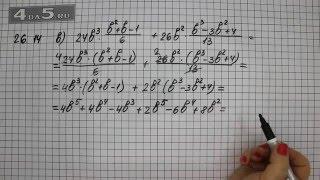 4DS.RU
26.14 в) 24b³ (b²+b-1)/6 + 26b² (b³-3b²+4)/13 =
= 24b³·(b²+b-1)/6 + 26b²·(b³-3b²+4)/13 =
= 4b³·(b²+b-1) + 2b²(b³-3b²+4) =
= 4b⁵+4b⁴-4b³+2b⁵-6b⁴+8b² =